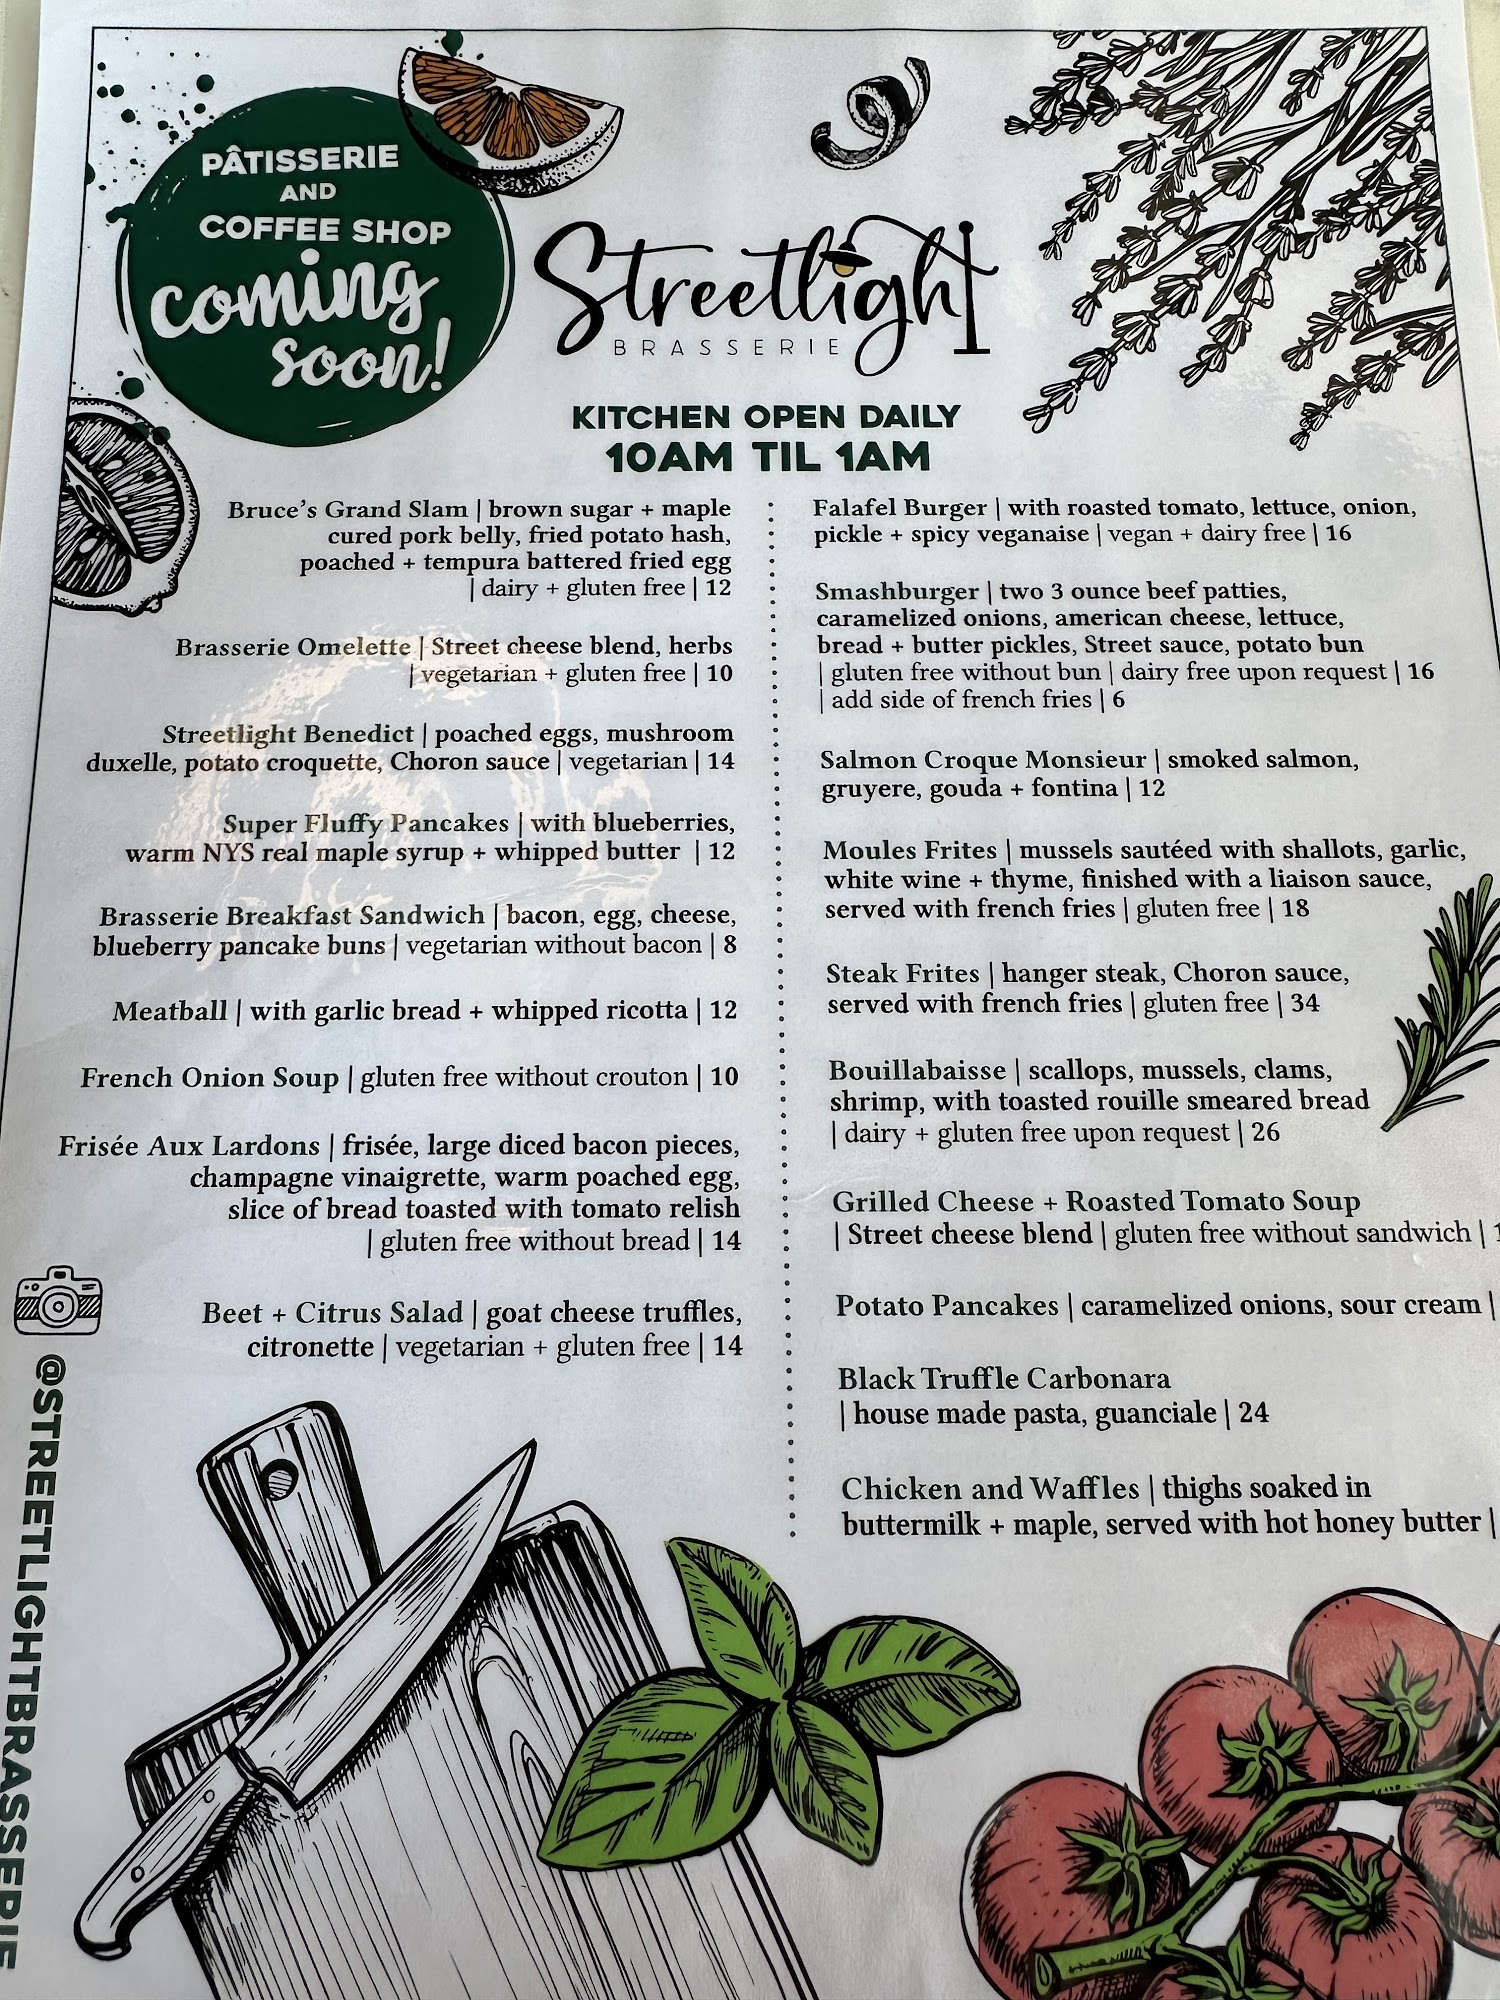 PÂTISSERIE
AND
COFFEE SHOP
coming
soon!
Streetlight
BRASSERIE
KITCHEN OPEN DAILY
10AM TIL 1AM
Bruce's Grand Slam | brown sugar + maple
cured pork belly, fried potato hash,
poached + tempura battered fried egg
| dairy + gluten free | 12
Brasserie Omelette | Street cheese blend, herbs
| vegetarian + gluten free | 10
Streetlight Benedict | poached eggs, mushroom
duxelle, potato croquette, Choron sauce | vegetarian | 14
Super Fluffy Pancakes | with blueberries,
warm NYS real maple syrup + whipped butter | 12
Brasserie Breakfast Sandwich | bacon, egg, cheese,
blueberry pancake buns | vegetarian without bacon | 8
Meatball | with garlic bread + whipped ricotta | 12
French Onion Soup | gluten free without crouton | 10
Frisée Aux Lardons | frisée, large diced bacon pieces,
champagne vinaigrette, warm poached egg,
slice of bread toasted with tomato relish
| gluten free without bread | 14
Beet + Citrus Salad | goat cheese truffles,
citronette | vegetarian + gluten free | 14
Falafel Burger | with roasted tomato, lettuce, onion,
pickle + spicy veganaise | vegan + dairy free | 16
Smashburger | two 3 ounce beef patties,
caramelized onions, american cheese, lettuce,
bread + butter pickles, Street sauce, potato bun
| gluten free without bun | dairy free upon request | 16
| add side of french fries | 6
Salmon Croque Monsieur | smoked salmon,
gruyere, gouda + fontina | 12
Moules Frites | mussels sautéed with shallots, garlic,
white wine + thyme, finished with a liaison sauce,
served with french fries | gluten free | 18
Steak Frites | hanger steak, Choron sauce,
served with french fries | gluten free | 34
Bouillabaisse | scallops, mussels, clams,
shrimp, with toasted rouille smeared bread
| dairy + gluten free upon request | 26
Grilled Cheese + Roasted Tomato Soup
| Street cheese blend | gluten free without sandwich |
Potato Pancakes | caramelized onions, sour cream |
Black Truffle Carbonara
| house made pasta, guanciale | 24
Chicken and Waffles | thighs soaked in
buttermilk + maple, served with hot honey butter |
@STREETLIGHTBRASSERIE